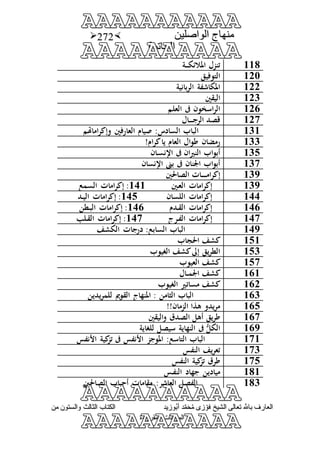 منهاج الواصلين
272
تنزل الملائكة 118
التوفيق 120
المكاشفة الربانية 122
اليقين 123
الراسخون فى العلم 126
قصد الرجال 127
الباب السادس: صيام العارفين وإكراماتهم 131
رمضان طوال العام ياكرام! 133
أبواب النيران فى الإنسان 135
أبواب الجنان فى بنى الإنسان 137
إكرامات الصالحين 139
إكرامات العين 139
141: إكرامات السمع
إكرامات اللسان 144
145: إكرامات اليد
إكرامات القدم 146
146: إكرامات البطن
إكرامات الفرج 147
147: إكرامات القلب
الباب السابع: درجات الكشف 149
كشف الحجاب 151
الطريق إلى كشف الغيوب 153
كشف العيوب 157
كشف الجمال 161
كشف مساتير الغيوب 162
الباب الثامن : المنهاج القويم للمريدين 163
مريدو هذا الزمان!! 165
طريق أهل الصدق واليقين 167
الكلُّ فى النهاية سيصل للغاية 169
الباب التاسع: الموجز الأنفس فى تزكية الأنفس 171
تعريف النفس 173
طرق تزكية النفس 175
ميادين جهاد النفس 181
الفصل العاشر: مقامات أحباب الصالحين 183
العارف بالله تعالى الشيخ فوزى محمد أبوزيد
الكتاب الثالث والستون من